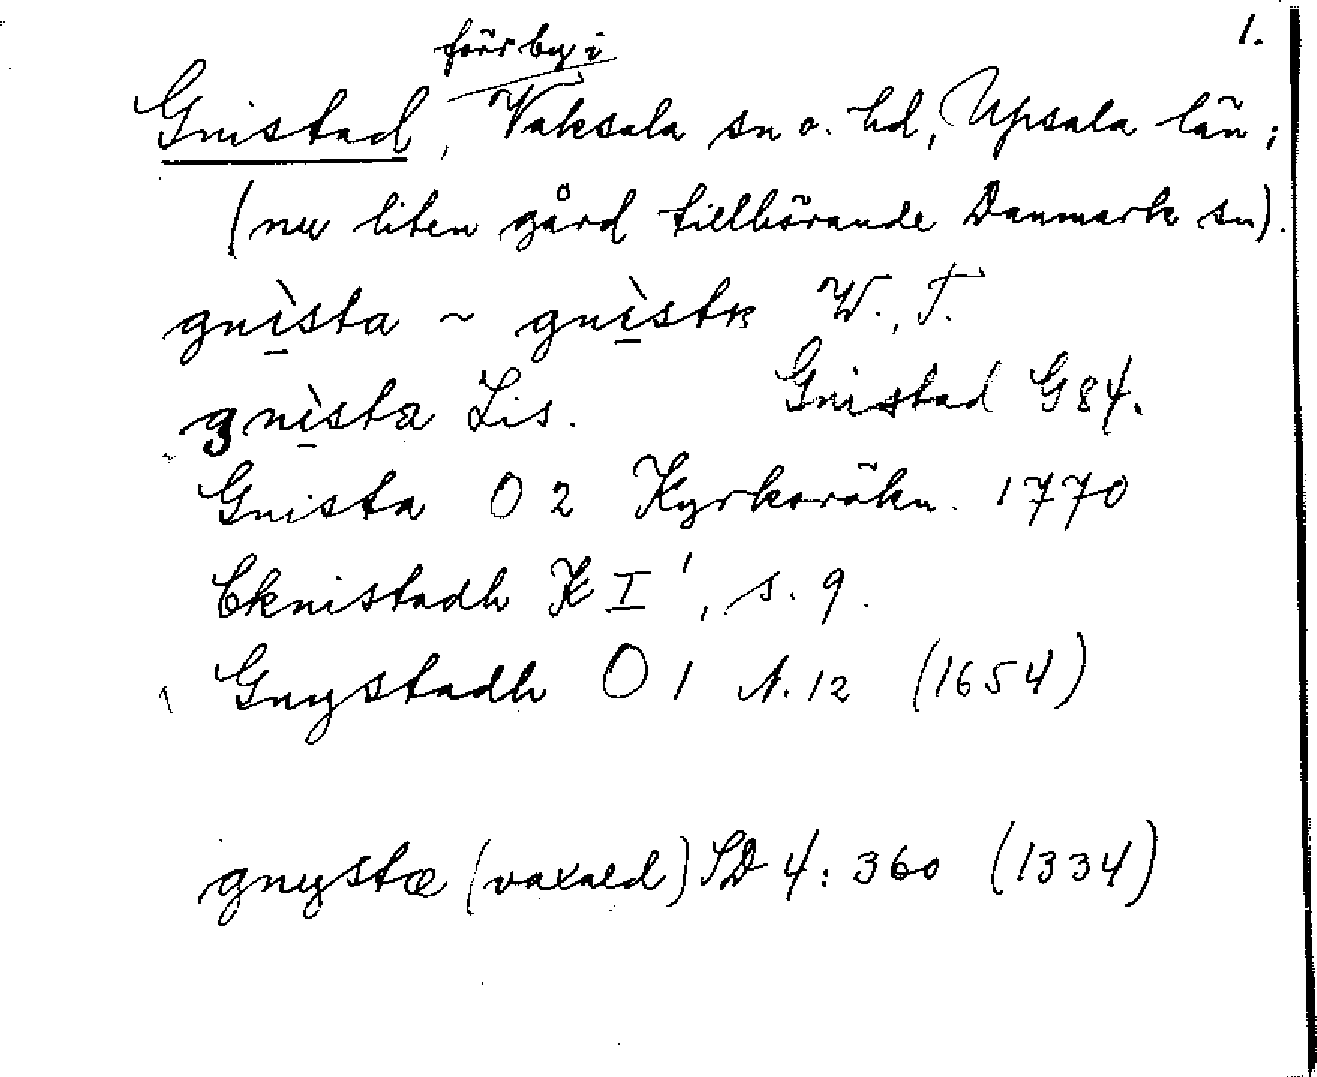 1.
förr by i
Gnistad, Vaksala sn o. hd, Upsala län;
(nu liten gård tillhörande Danmark sn).
gnìsta ~ gnìstʀ W., T.
gnìsta Lis. Gnistad G84.
Gnista O 2 Kyrkoräkn. 1770
Eknistadh K I 1, s. 9.
Gnystadh O 1 N. 12 (1654)
gnystæ (vaxald) SD 4: 360 (1334)